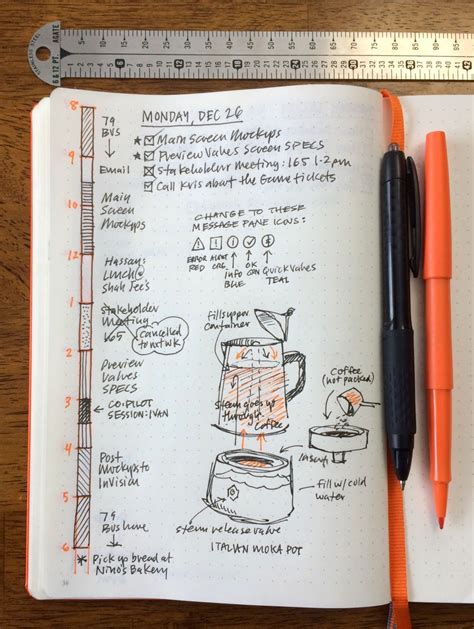 MONDAY, DEC 26
★ Main Screen Mockups
★ Preview Valves Screen SPECS
Stakeholder Meeting: 165 1-2pm
Call Kris about the Game tickets
CHANGE TO THESE
MESSAGE PANE ICONS:
ERROR ALERT OK Quick Valves
RED ORG GRN TEAL
info
BLUE
8
79
BUS
9
Email
10
Main
Screen
Mockups
11
Hassan:
Lunch @
Shah Lee's
12
1
Stakeholder
Meeting
165
Cancelled
to nxt wk
2
Preview
Valves
SPECS
3
CO-PILOT
SESSION: IVAN
4
Post
Mockups to
InVision
5
79
Bus home
6
* Pick up bread at
Nino's Bakery
fills upper
container
Steam goes up
through
Coffee
Coffee
(not packed)
fill w/cold
water
steam release valve
ITALIAN MOKA POT